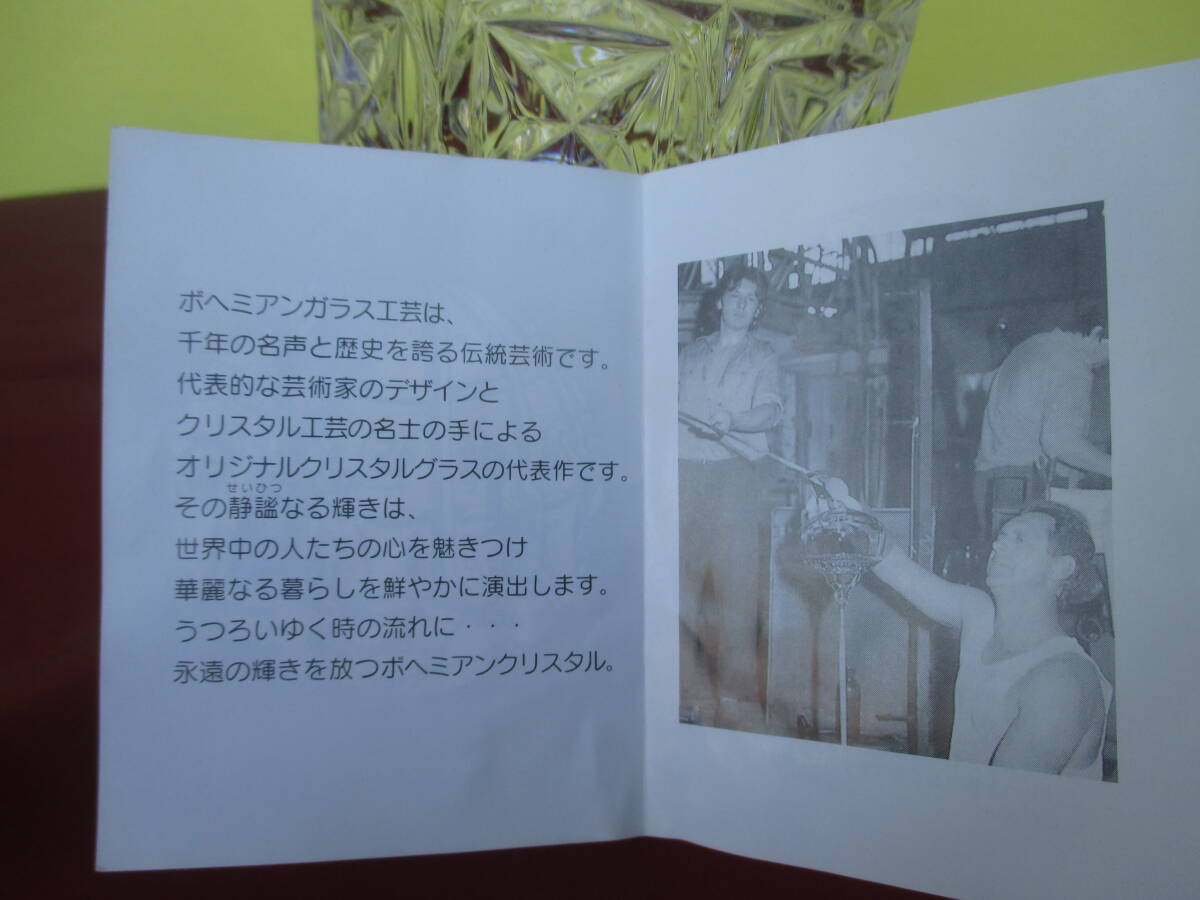 ボヘミアンガラス工芸は、
千年の名声と歴史を誇る伝統芸術です。
代表的な芸術家のデザインと
クリスタル工芸の名士の手による
オリジナルクリスタルグラスの代表作です。
せいひつ
その静謐なる輝きは、
世界中の人たちの心を魅きつけ
華麗なる暮らしを鮮やかに演出します。
うつろいゆく時の流れに・・・
永遠の輝きを放つボヘミアンクリスタル。